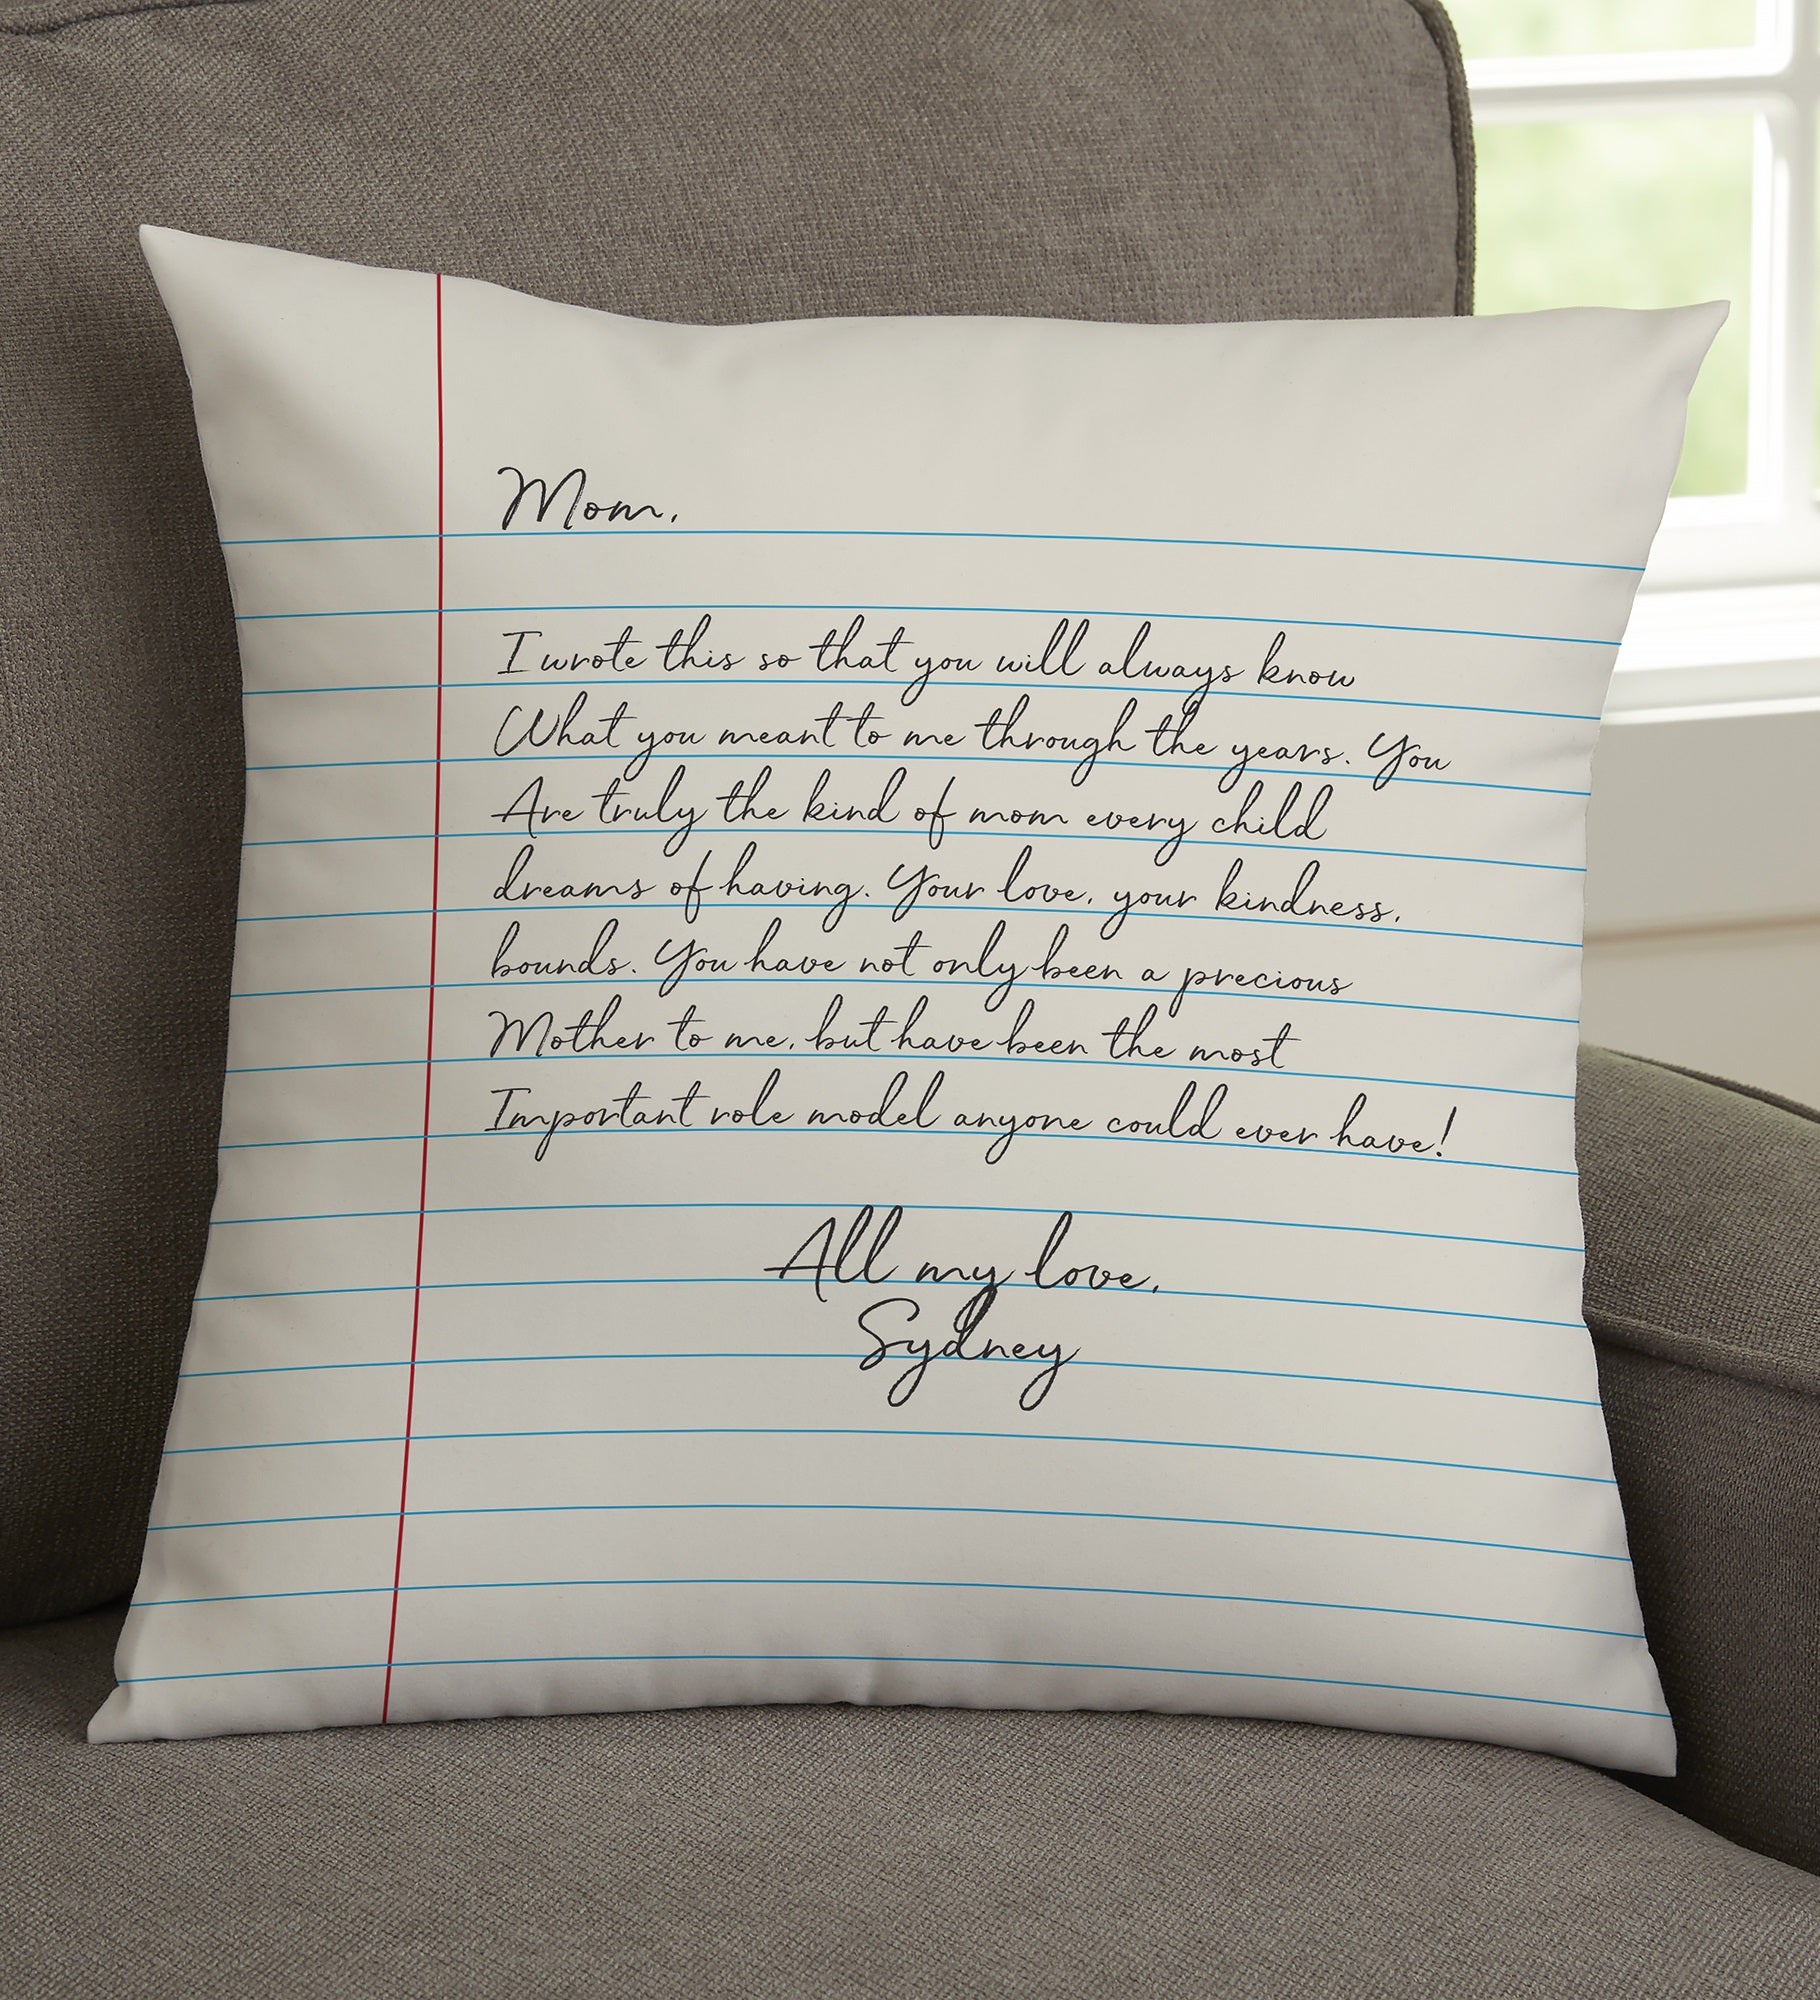 Mom,
I wrote this so that you will always know
What you meant to me through the years. You
Are truly the kind of mom every child
dreams of having. Your love, your kindness,
bounds. You have not only been a precious
Mother to me, but have been the most
Important role model anyone could ever have!
All my love,
Sydney